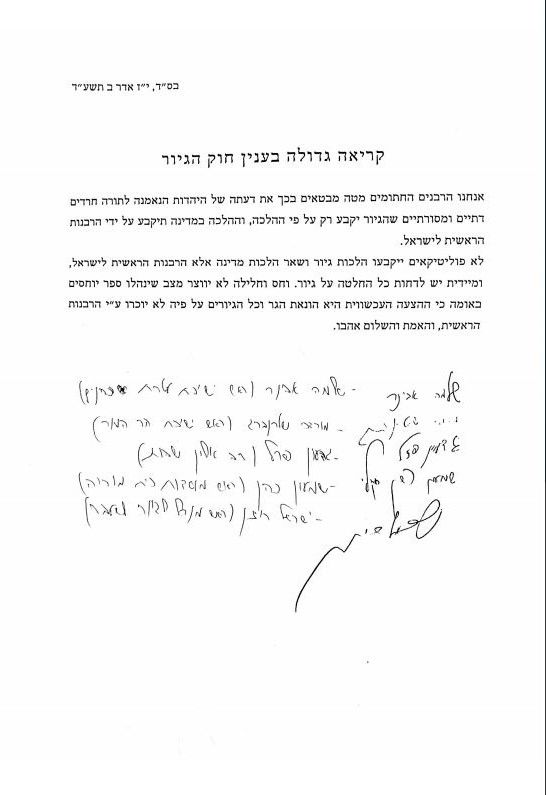 בס״ד, י״ז אדר ב תשע״ד
קריאה גדולה בענין חוק הגיור
אנחנו הרבנים החתומים מטה מבטאים בכך את דעתה של היהדות הנאמנה לתורה חרדים
דתיים ומסורתיים שהגיור יקבע רק על פי ההלכה, וההלכה במדינה תיקבע על ידי הרבנות
הראשית לישראל.
לא פוליטיקאים ייקבעו הלכות גיור ושאר הלכות מדינה אלא הרבנות הראשית לישראל,
ומיידית יש לדחות כל החלטה על גיור. וחס וחלילה לא יווצר מצב שינהלו ספר יוחסים
באומה כי ההצעה העכשווית היא הונאת הגר וכל הגיורים על פיה לא יוכרו ע״י הרבנות
הראשית, והאמת והשלום אהבו.
שלמה אבינר - שלמה אבינר (ראש ישיבת עטרת כהנים)
- מרדכי שטרנברג (ראש ישיבת הר המור)
גדעון פרל - גדעון פרל (רב אלון שבות)
שמעון כהן - שמעון כהן (ראש מוסדות בית מוריה)
- ישראל רוזן (ראש מנהל הגיור לשעבר)